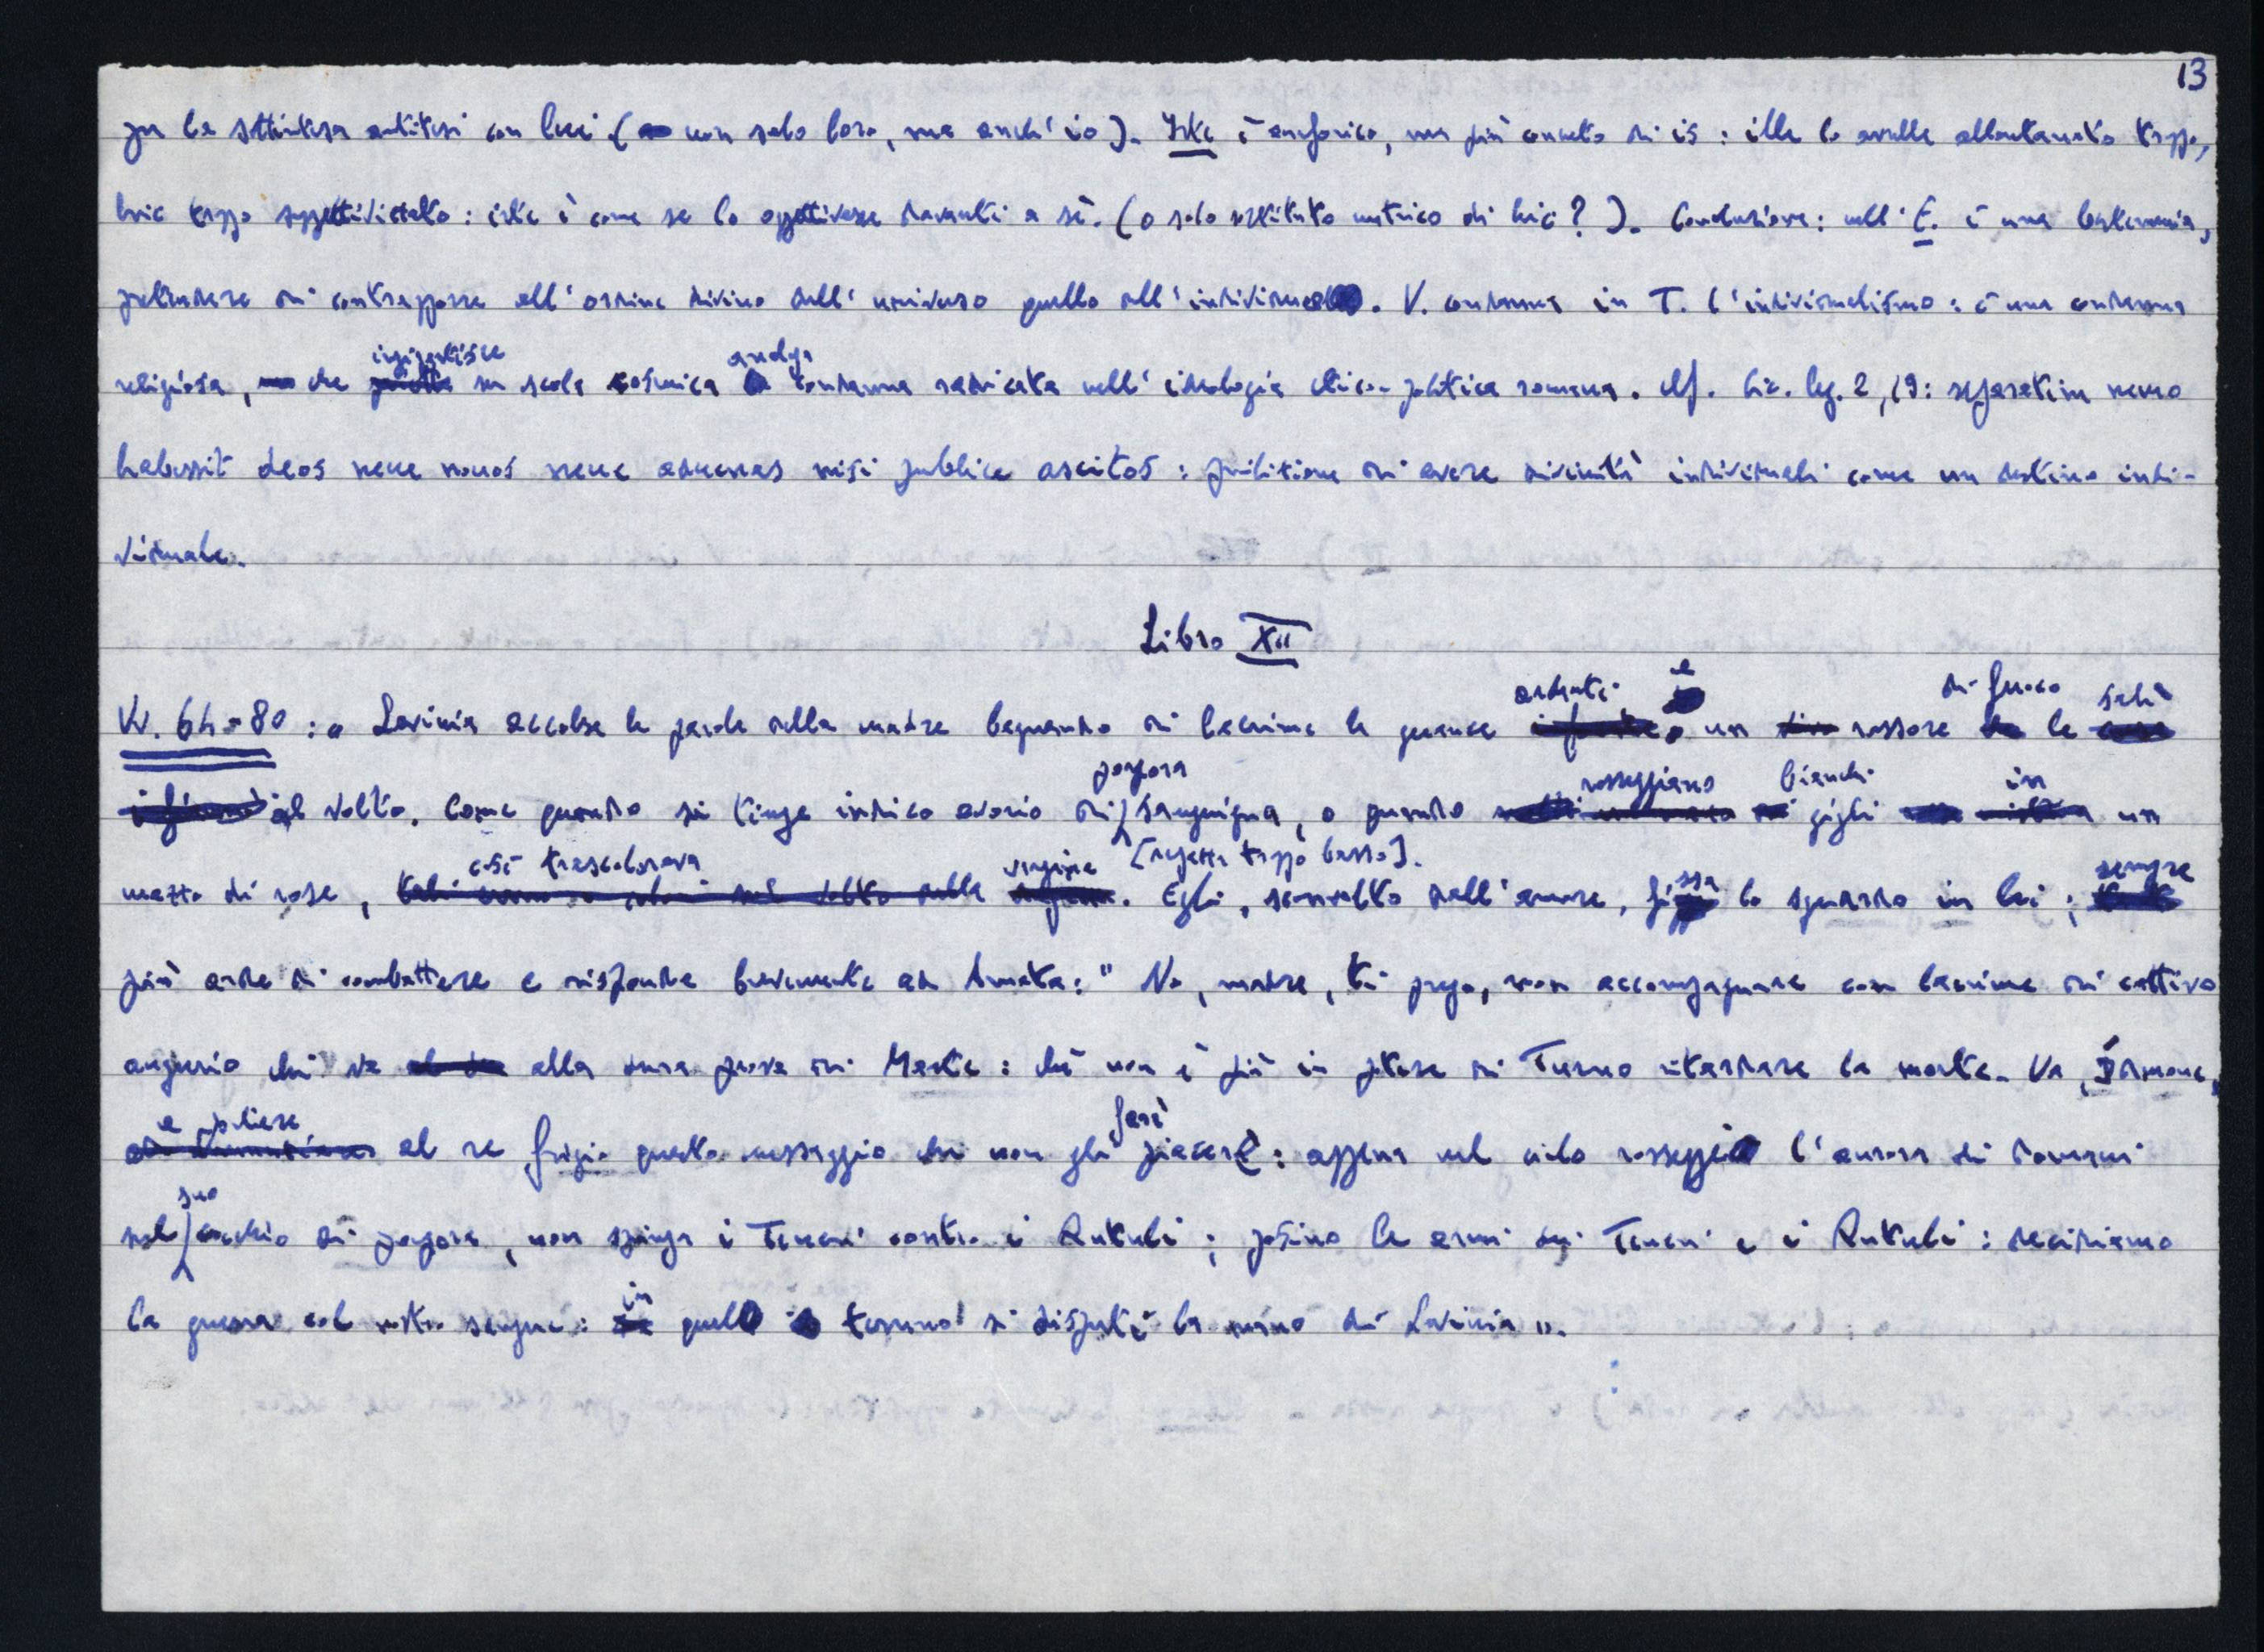 13
per la sottintesa antitesi con luci (non solo loro, ma anch'io). Iste è anaforico, ma più concreto di is: ille lo avrebbe allontanato troppo,
hic troppo soggettivizzato: iste è come se lo oggettivasse davanti a sé. (o solo sostituto metrico di hic?). Conclusione: nell'E. è una bestemmia,
pretendere di contrapporre all'ordine divino dell'universo quello dell'individuo. V. condanna in T. l'individualismo: è una condanna
religiosa, che ingigantisce su scala cosmica analoga condanna radicata nell'ideologia etico-politica romana. Cf. Cic. leg. 2, 19: separatim nemo
habessit deos neve novos neve advenas nisi publice ascitos: proibizione di avere divinità individuali come un destino indi-
viduale.
Libro XII
Vv. 64-80: « Lavinia accolse le parole della madre bagnando di lacrime le guance ardenti e un rossore di fuoco le salì
al volto. Come quando si tinge indico avorio di porpora sanguigna, o quando rosseggiano bianchi gigli in un
mazzo di rose, così trascolorava vergine [ragazza troppo basso]. Egli, sconvolto dall'amore, fissa lo sguardo in lei; sempre
più arde di combattere e risponde brevemente ad Amata: " No, madre, ti prego, non accompagnare con lacrime di cattivo
augurio chi va alla dura prova di Marte: ché non è più in potere di Turno ritardare la morte. Va, Idmone,
e riferire al re frigio questo messaggio che non gli farà piacere: appena nel cielo rosseggi l'aurora di domani
sul suo cocchio di porpora, non spinga i Teucri contro i Rutuli; posino le armi i Teucri e i Rutuli: decidiamo
la guerra col nostro sangue: in quel terreno si disputi la mano di Lavinia ».